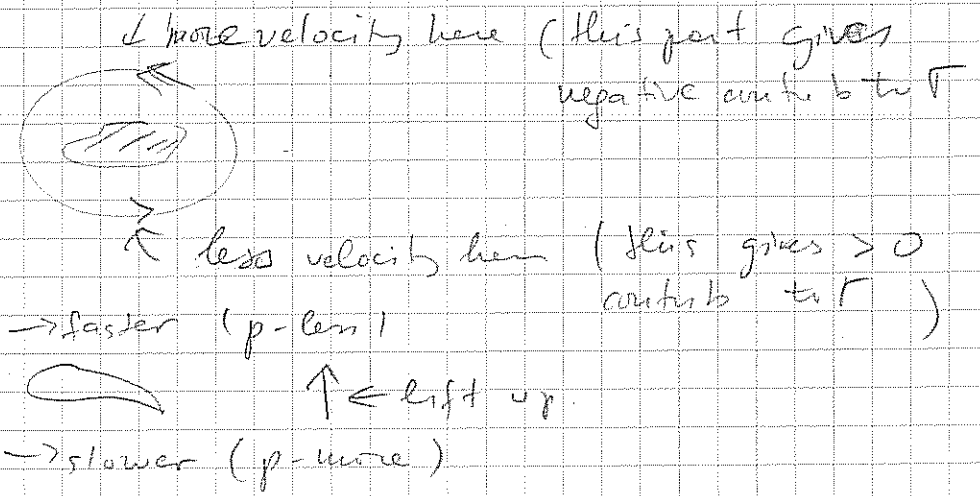 ↓ more velocity here (this part gives
negative contrib to Γ
↖ less velocity here (this gives > 0
contrib to Γ )
→ faster (p-less)
↑ ← lift up.
→ slower (p-more)